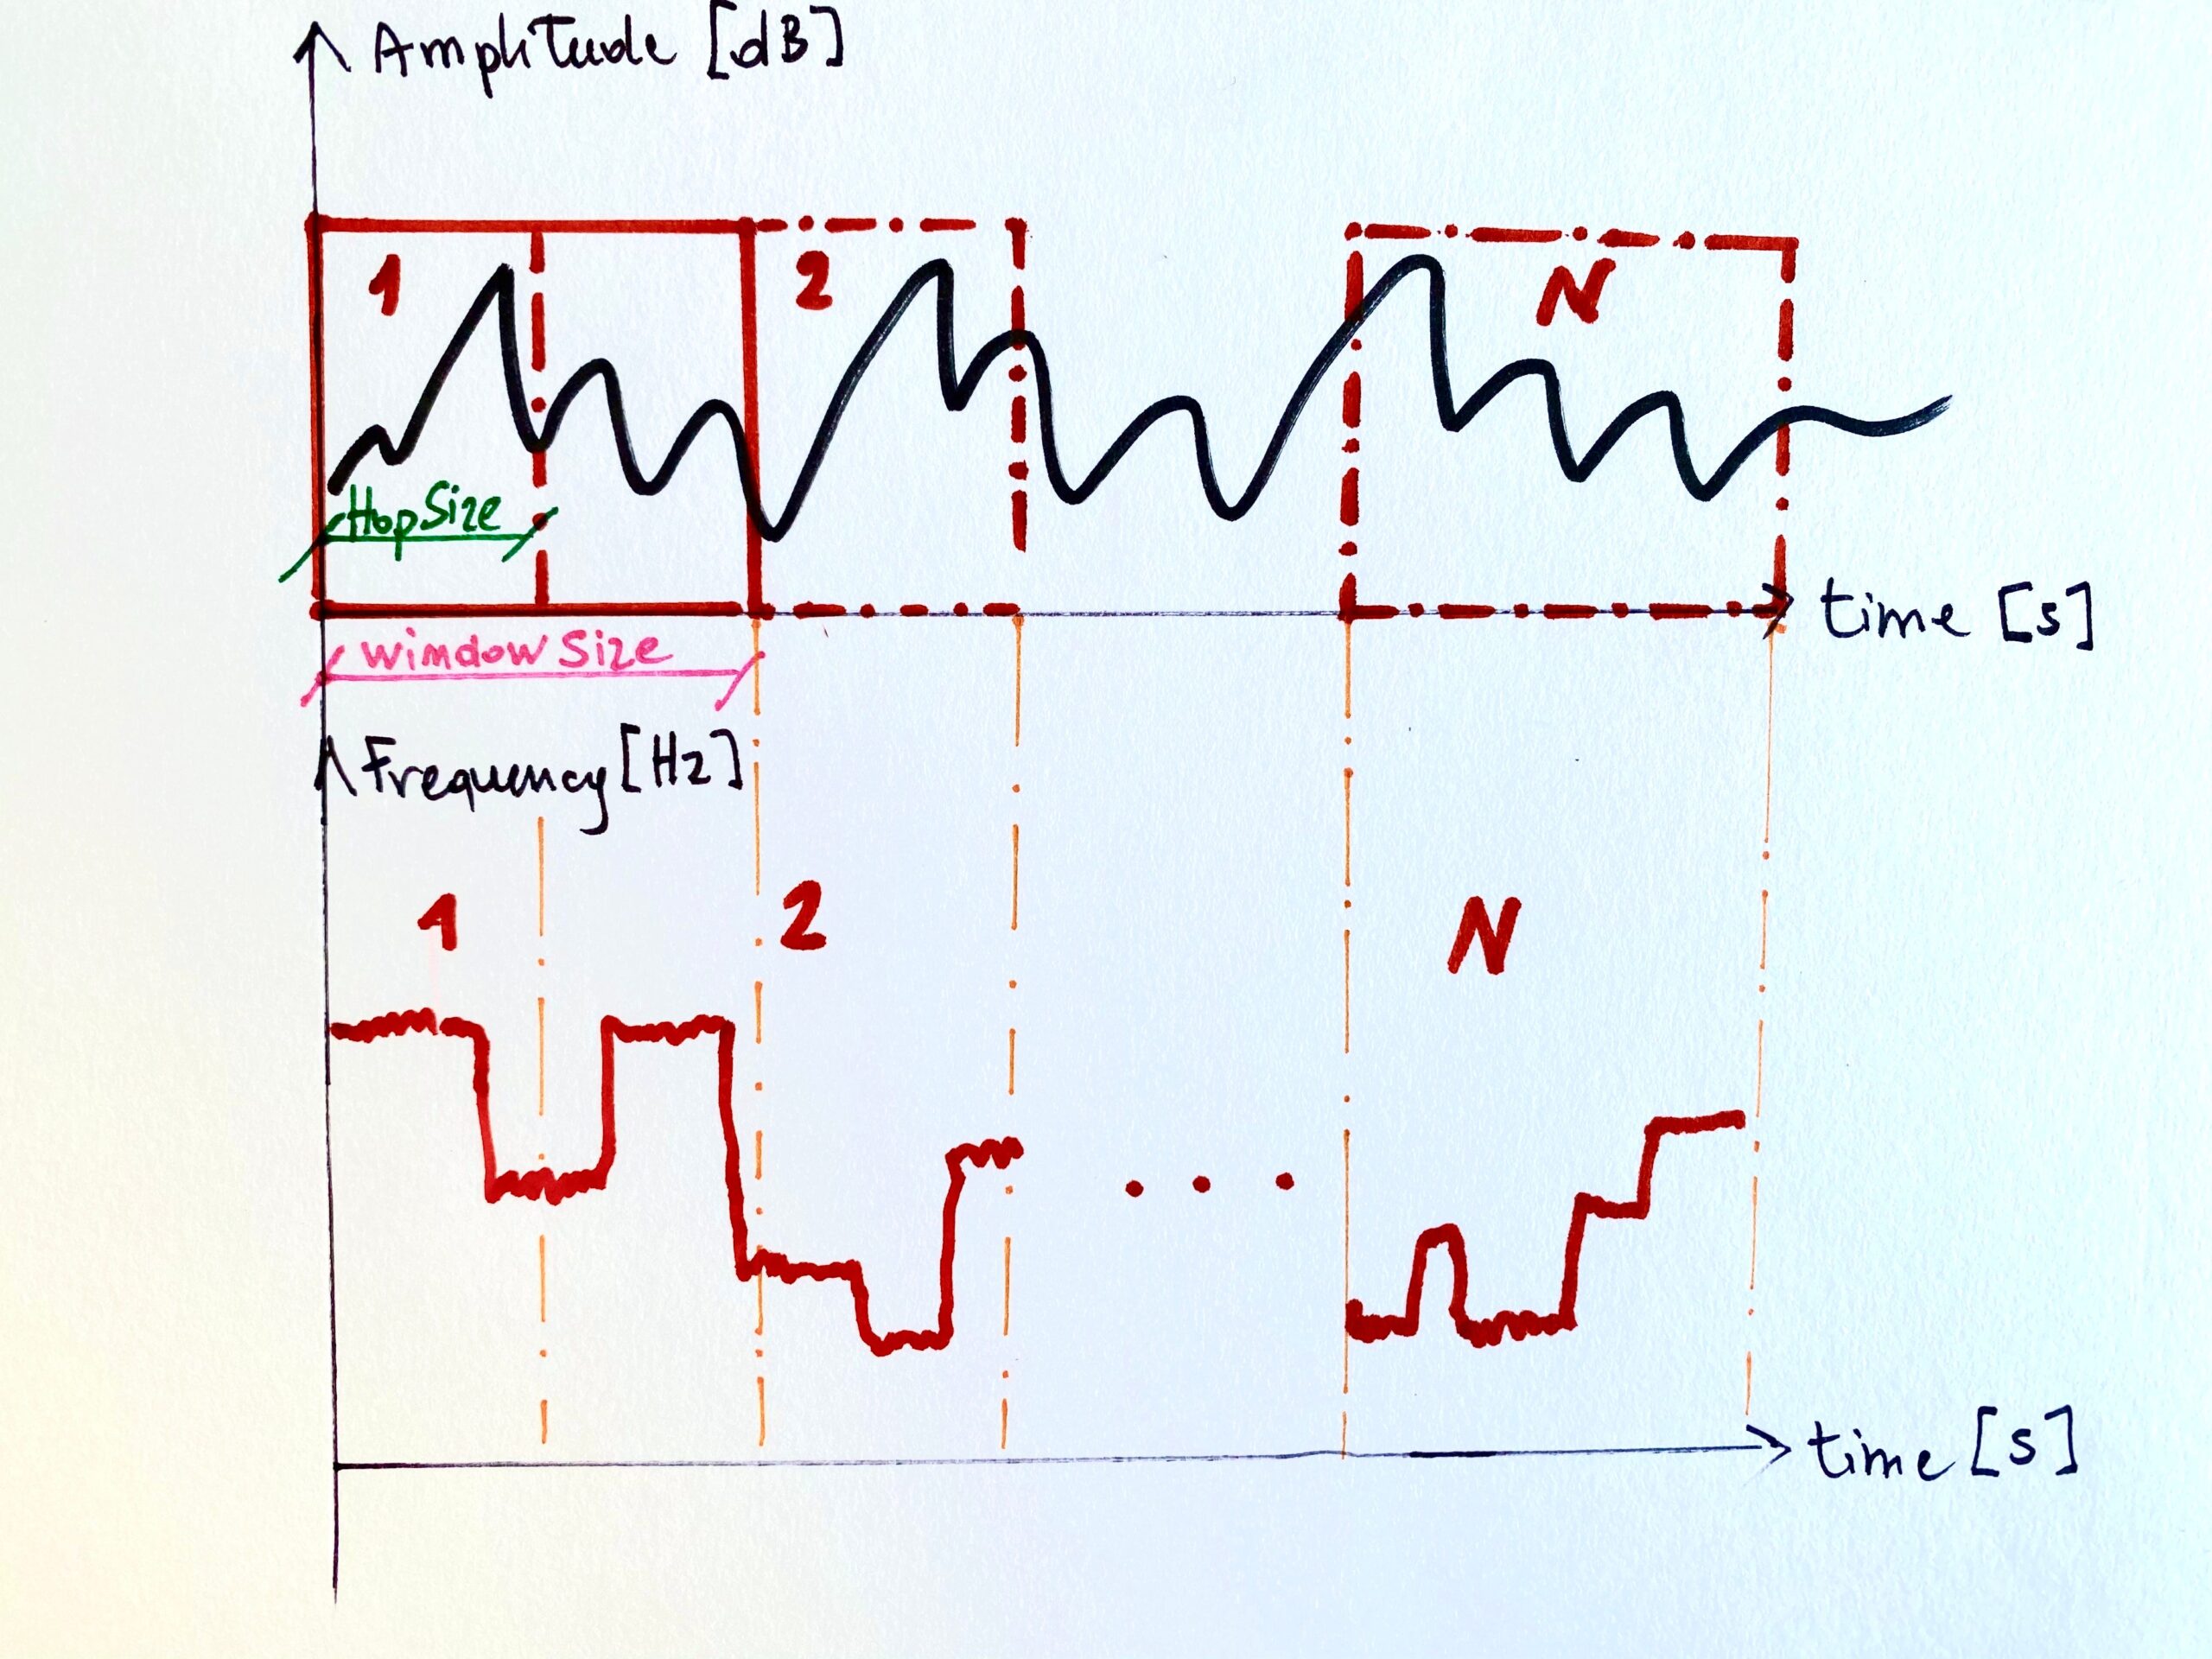 Amplitude [dB]
1 2 N
Hop Size
time [s]
Window Size
Frequency [Hz]
1 2 N
time [s]